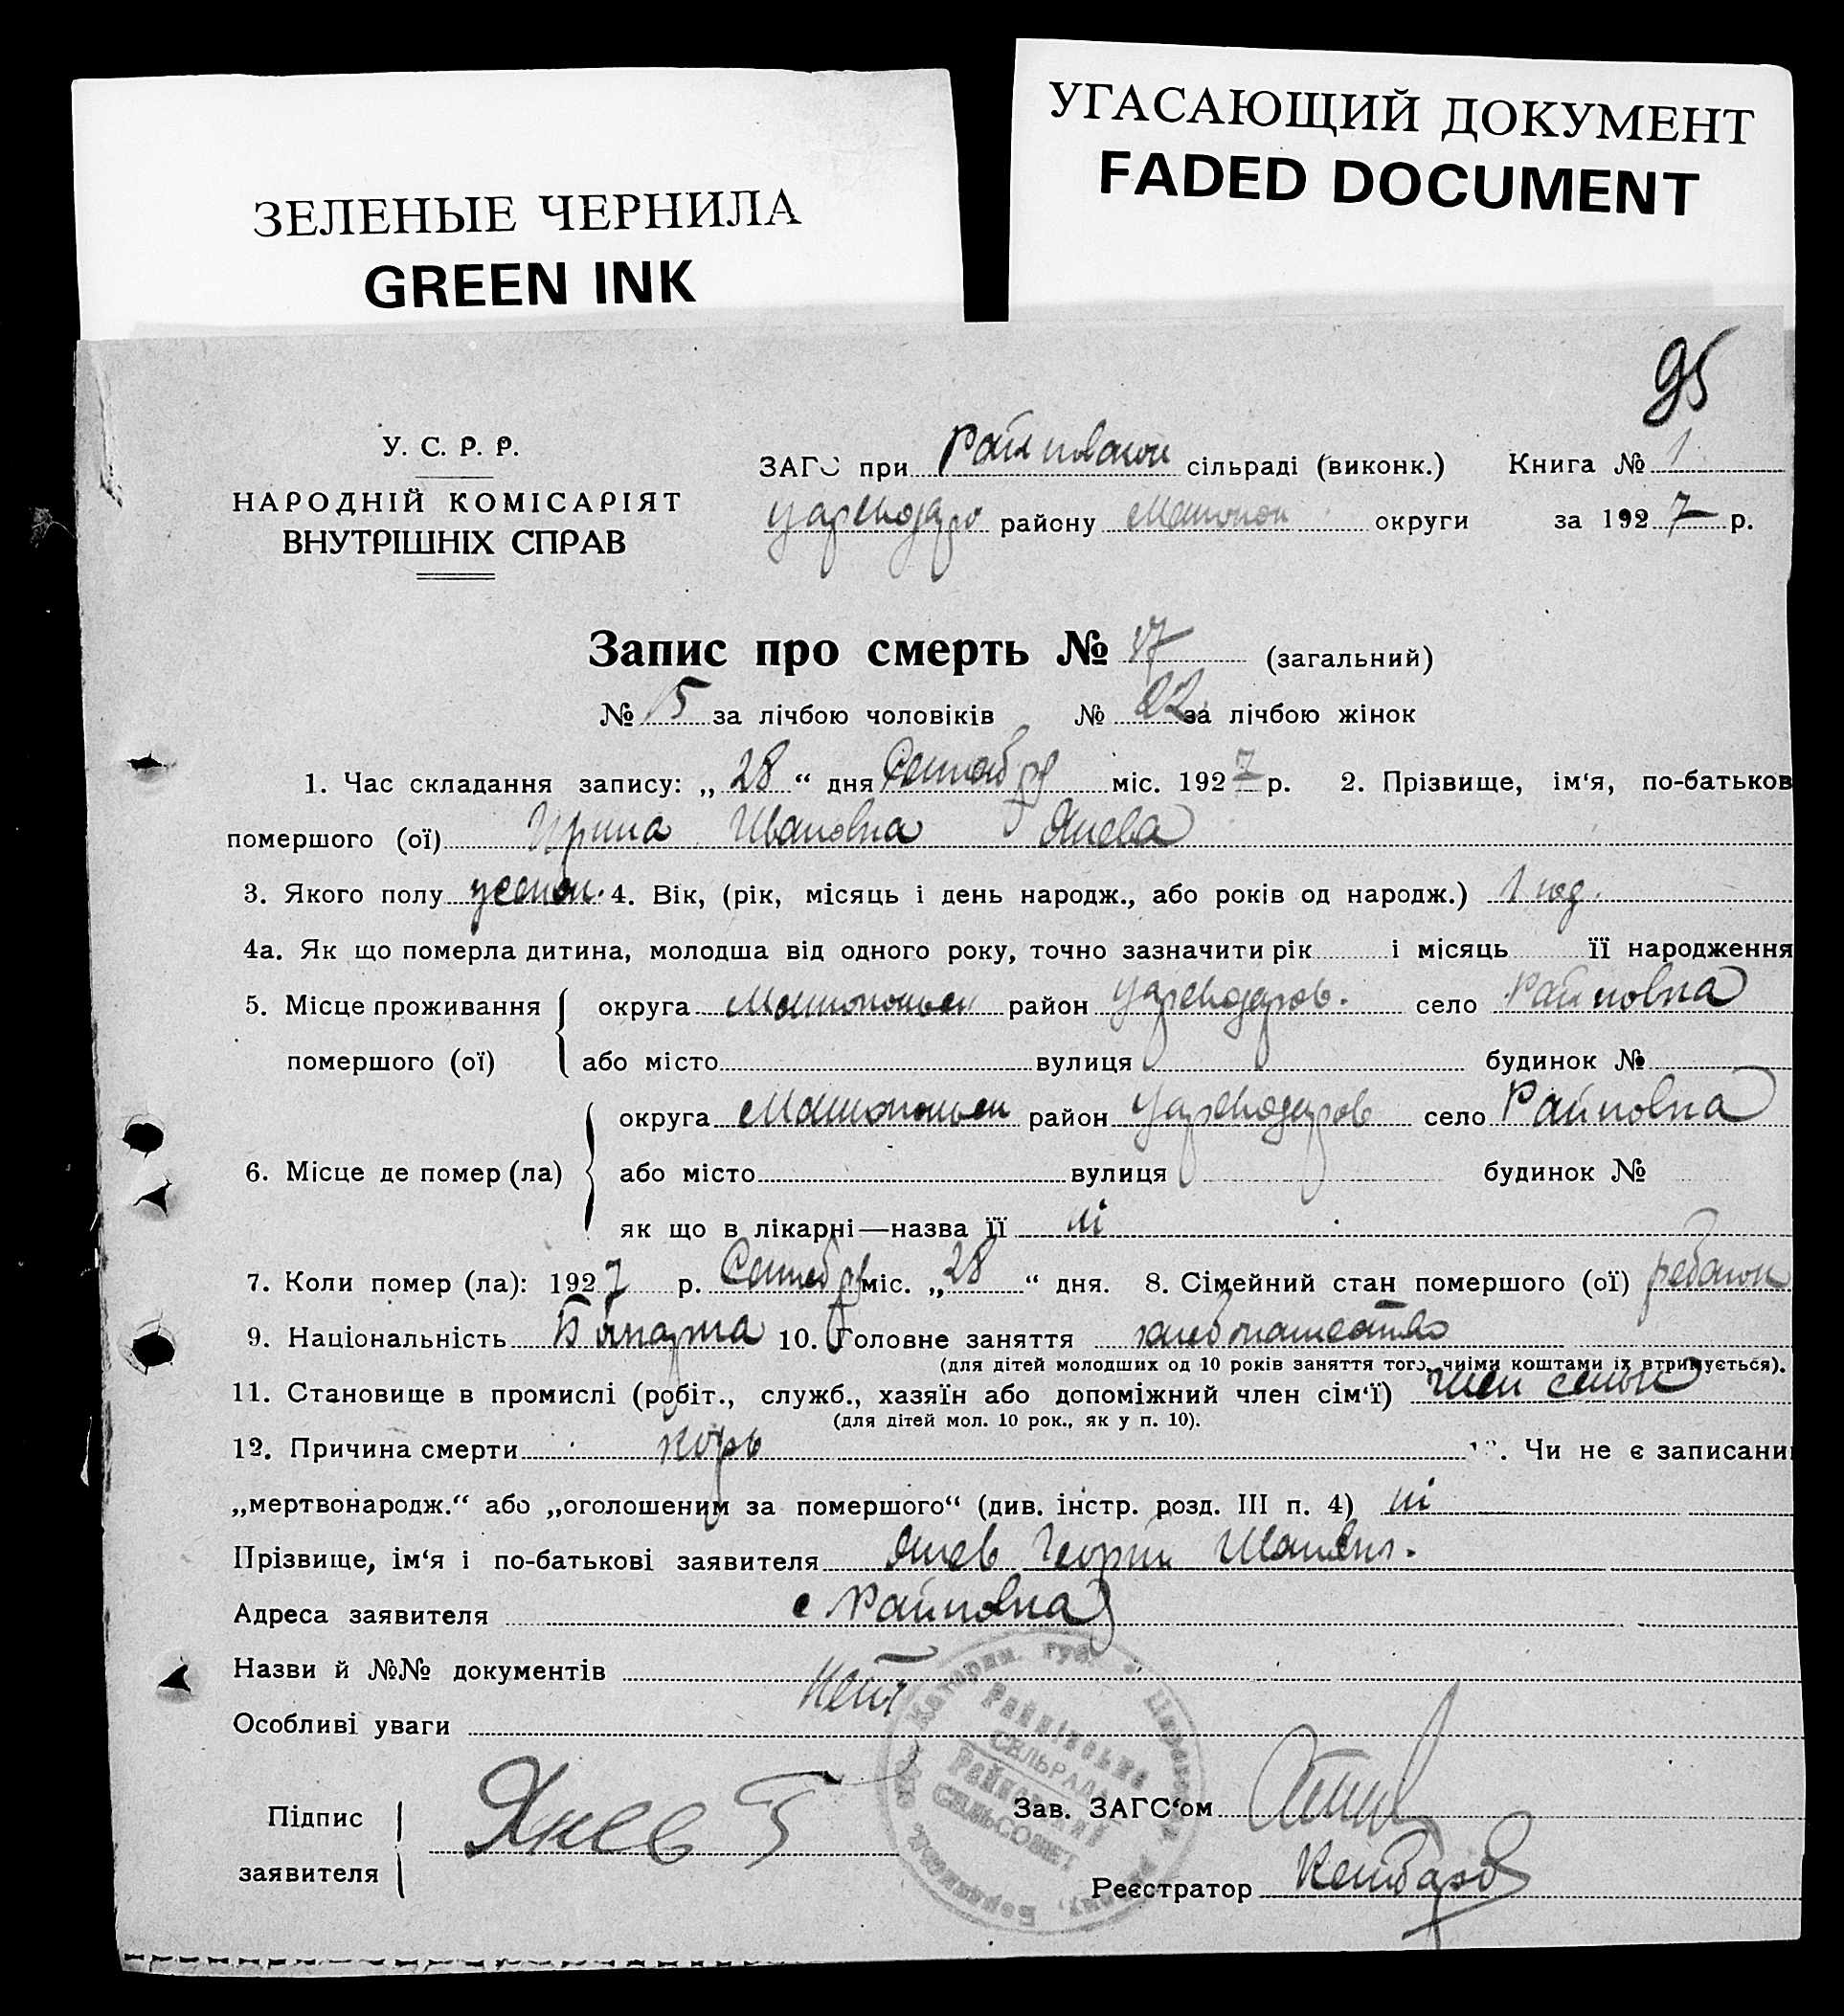 УГАСАЮЩИЙ ДОКУМЕНТ
FADED DOCUMENT
ЗЕЛЕНЫЕ ЧЕРНИЛА
GREEN INK
95
У. С. Р. Р.
НАРОДНІЙ КОМІСАРІЯТ
ВНУТРІШНІХ СПРАВ
ЗАГС при сільраді (виконк.) Книга № 1
району округи за 1927 р.
Запис про смерть № 17 (загальний)
№ 15 за лічбою чоловіків № 22 за лічбою жінок
1. Час складання запису: „28“ дня Сентября міс. 1927 р. 2. Прізвище, ім‘я, по-батьков
помершого (ої) Ирина Ивановна Янева
3. Якого полу женск. 4. Вік, (рік, місяць і день народж., або років од народж.) 1 год.
4а. Як що померла дитина, молодша від одного року, точно зазначити рік і місяць її народження
5. Місце проживання округа район Царекодаров. село Райновка
помершого (ої) або місто вулиця будинок №
округа район Царекодаров село Райновка
6. Місце де помер (ла) або місто вулиця будинок №
як що в лікарні—назва її ні
7. Коли помер (ла): 1927 р. міс. „28“ дня. 8. Сімейний стан помершого (ої) ребенок
9. Національність Болгарка 10. Головне заняття хлебопашество
(для дітей молодших од 10 років заняття того, чиїми коштами їх втримується).
11. Становище в промислі (робіт., служб., хазяїн або допоміжний член сім‘ї) член семьи
(для дітей мол. 10 рок., як у п. 10).
12. Причина смерти корь 13. Чи не є записани
„мертвонародж.“ або „оголошеним за помершого“ (див. інстр. розд. III п. 4) ні
Прізвище, ім‘я і по-батькові заявителя Янев Георги
Адреса заявителя с Райновка
Назви й №№ документів нет
Особливі уваги
Райнівська
СЕЛЬРАДА
Райновский
СЕЛЬСОВЕТ
Підпис
заявителя Янев Г
Зав. ЗАГС‘ом
Реєстратор